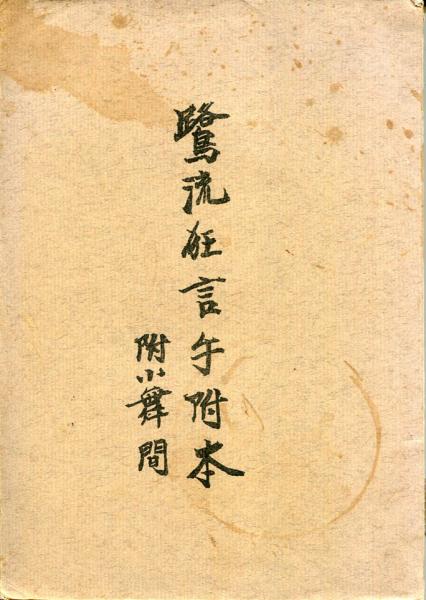 鷺流狂言手附本
附小舞間